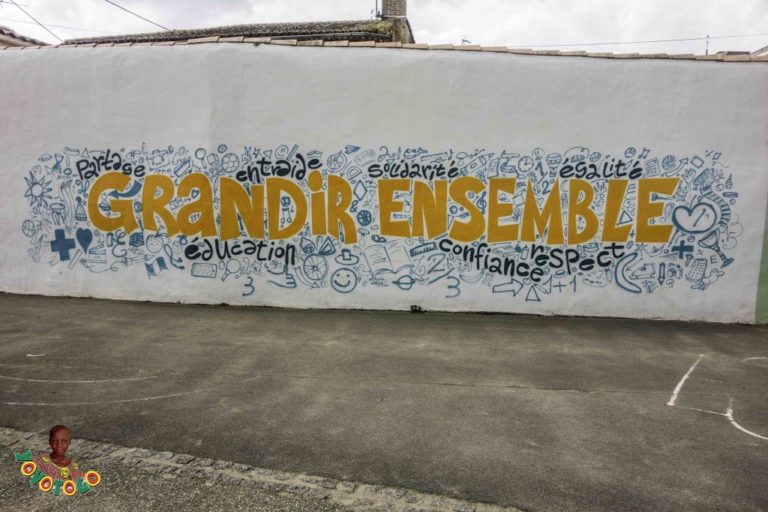 Partage entraide solidarité égalité
GRANDIR ENSEMBLE
éducation confiance respect
2
+1
YOVOTOGO